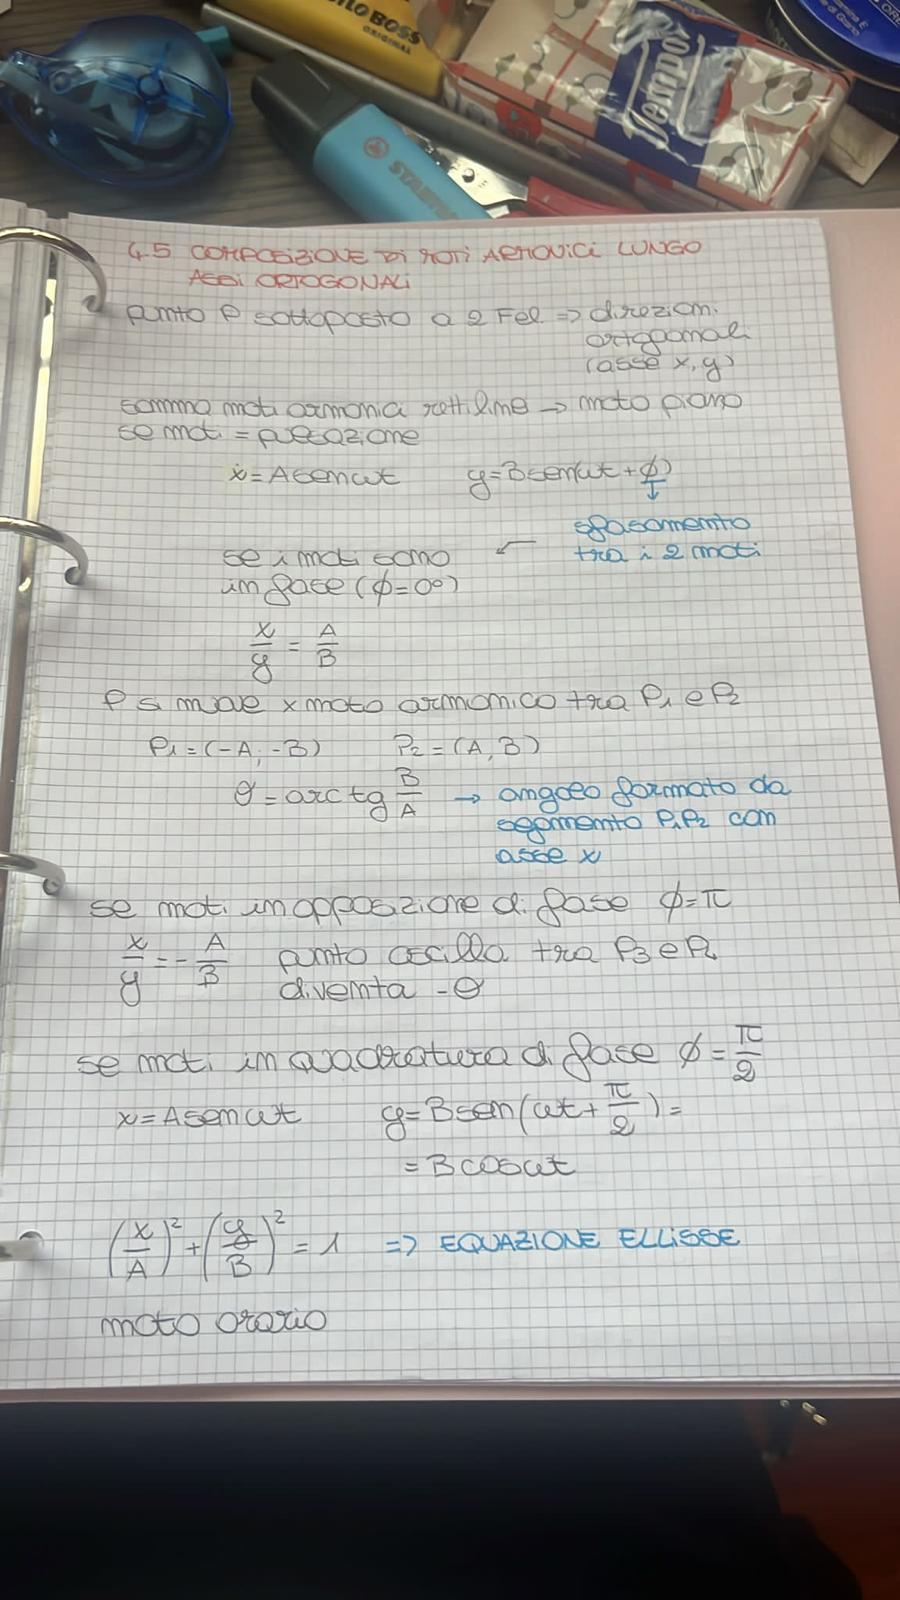 TIPO BOSS
ORIGINAL
STABILO
Tempo
4.5 COMPOSIZIONE DI MOTI ARMONICI LUNGO
ASSI ORTOGONALI
punto P sottoposto a 2 Fel => direzioni
ortogonali
(asse x, y)
somma moti armonici rettilinei → moto piano
se moti = pulsazione
x = A sen ωt y = B sen(ωt + ϕ)
↓
sfasamento
tra i 2 moti
←
se i moti sono
in fase (ϕ = 0°)
x/y = A/B
P si muove x moto armonico tra P1 e P2
P1 = (-A, -B) P2 = (A, B)
θ = arctg B/A → angolo formato da
segmento P1P2 con
asse x
se moti in opposizione di fase ϕ = π
x/y = - A/B punto oscilla tra P3 e P4
diventa -θ
se moti in quadratura di fase ϕ = π/2
x = A sen ωt y = B sen(ωt + π/2) =
= B cos ωt
(x/A)² + (y/B)² = 1 => EQUAZIONE ELLISSE
moto orario